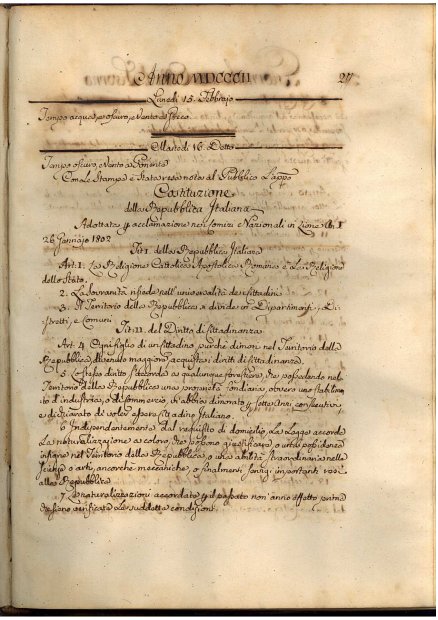 Anno MDCCCII
27
Lunedì 15. Febbrajo
Tempo acqueo, oscuro, e Vento a Greco
Martedì 16. Detto
Tempo oscuro, e Vento a Ponente
Con le Stampe è Stata resa nota al Pubblico l'appo
Costituzione
della Repubblica Italiana
Adottata per acclamazione nei Comizj Nazionali in Lione An. I
26 Gennajo 1802
Tit. I. della Repubblica Italiana
Art. 1. La Religione Cattolica Apostolica Romana è la Religione
dello Stato.
2. La Sovranità risiede nell'universalità dei Cittadini
3. Il Territorio della Repubblica si divide in Dipartimenti, Di-
stretti, e Comuni
Tit. II. del Diritto di Cittadinanza
Art. 4. Ogni figlio di un Cittadino, purchè dimori nel Territorio della
Repubblica, divenuto maggiore, acquista i diritti di Cittadinanza.
5. Lo stesso diritto si accorda a qualunque forestiere, che possedendo nel
Territorio della Repubblica una proprietà fondiaria, ovvero uno stabilimen
to d'industria, o di commercio, vi abbia dimorato per sette Anni consecutivi,
e dichiarato di voler essere Cittadino Italiano.
6. Indipendentemente dal requisito di domicilio, la Legge accorda
la naturalizazione a coloro, che possono giustificare, o una possidenza
insigne nel Territorio della Repubblica, o una abilità straordinaria nelle
Scienze o arti, ancorchè mecaniche, o finalmente servigj importanti resi
alla Repubblica
7. Le naturalizazioni accordate per il passato non anno effetto prima
che sieno verificate le suddette condizioni.